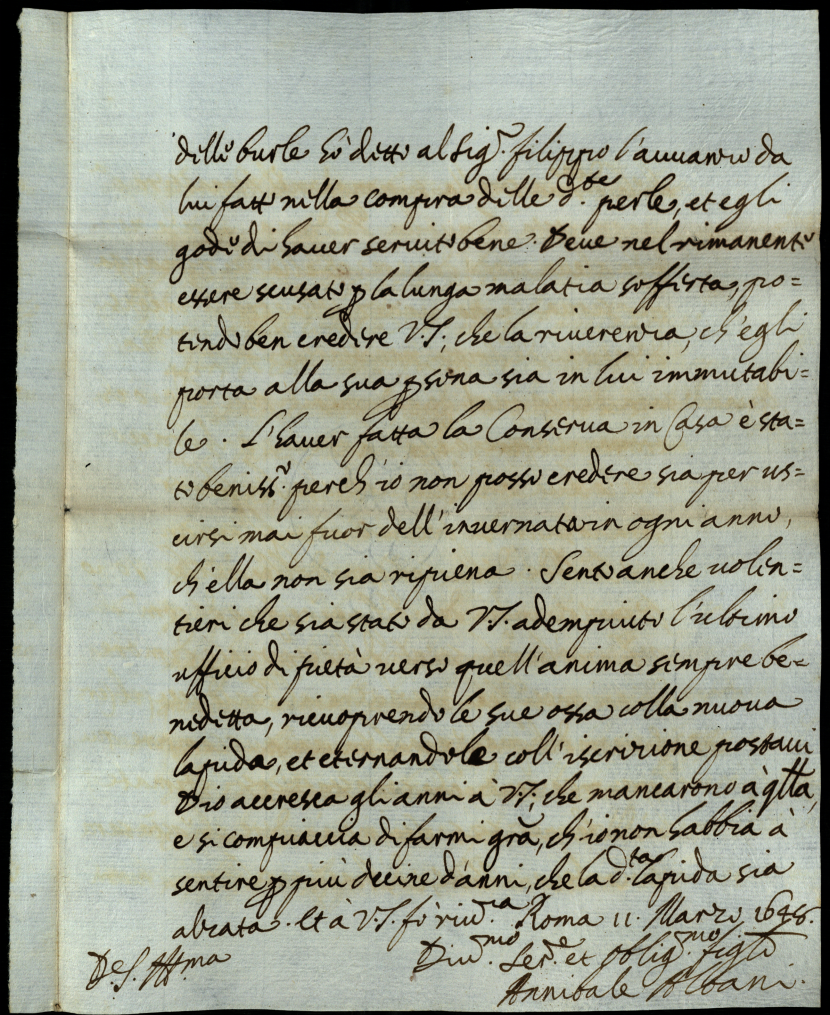 delle burle hò detto al Sig.r filippo l'auuanzo da
lui fatto nella compra delle d.te perle, et egli
gode di hauer seruito bene. Deue nel rimanente
essere scusato p la lunga malatia sofferta, po=
tendo ben credere V.S., che la riuerenza, ch'egli
porta alla sua psona sia in lui immutabi=
le. L'hauer fatta la Conserua in Casa è sta=
to beniss.o perch'io non posso credere sia per us=
cirsi mai fuor dell'inuernata in ogni anno,
ch'ella non sia ripiena. Sento anche uolen=
tieri che sia stato da V.S. adempiuto l'ultimo
ufficio di pietà uerso quell'anima sempre be=
nedetta, ricoprendo le sue ossa colla nuoua
lapida, et eternandole coll'iscrizione postaui
Dio accresca gli anni à V.S., che mancarono à qlla,
e si compiaccia di farmi gra, ch'io non habbia à
sentire p più decine d'anni, che la d.ta lapida sia
alzata. Et à V.S. fò riu.a Roma 11. Marzo
D.e S. Ill.ma
Diu.mo Ser.e et oblig.mo figlio
Annibale Albani.